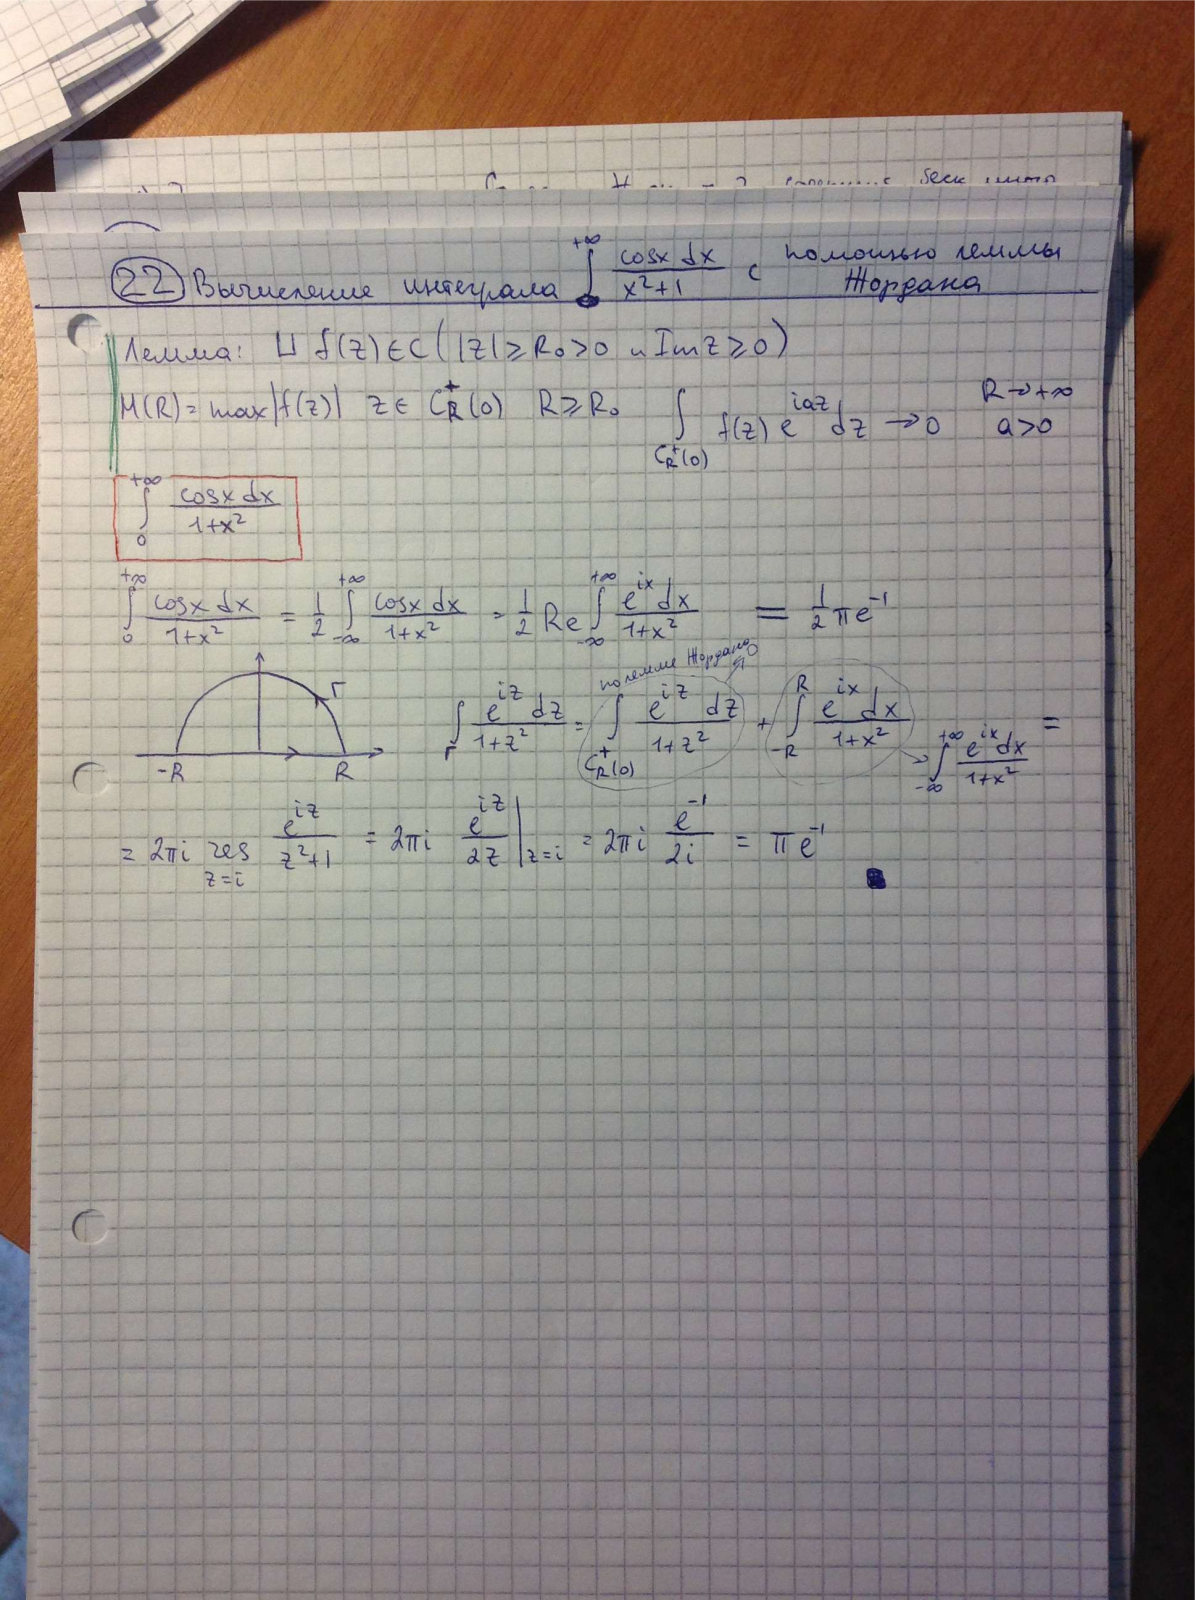 22 Вычисление интеграла ∫_0^{+∞} cosx dx / (x²+1) с помощью леммы Жордана
Лемма: ⊔ f(z) ∈ C ( |z| ≥ R₀ > 0 и Im z ≥ 0 )
M(R) = max|f(z)| z ∈ C_R^+(0) R ≥ R₀ ∫_{C_R^+(0)} f(z) e^{iaz} dz → 0 R → +∞ a > 0
∫_0^{+∞} cosx dx / (1+x²)
∫_0^{+∞} cosx dx / (1+x²) = 1/2 ∫_{-∞}^{+∞} cosx dx / (1+x²) = 1/2 Re ∫_{-∞}^{+∞} e^{ix} dx / (1+x²) = 1/2 π e^{-1}
по лемме Жордана → 0
Г
∫_Г e^{iz} dz / (1+z²) = ∫_{C_R^+(0)} e^{iz} dz / (1+z²) + ∫_{-R}^{R} e^{ix} dx / (1+x²) → ∫_{-∞}^{+∞} e^{ix} dx / (1+x²) =
-R R
= 2πi res_{z=i} e^{iz} / (z²+1) = 2πi e^{iz} / 2z |_{z=i} = 2πi e^{-1} / 2i = π e^{-1}